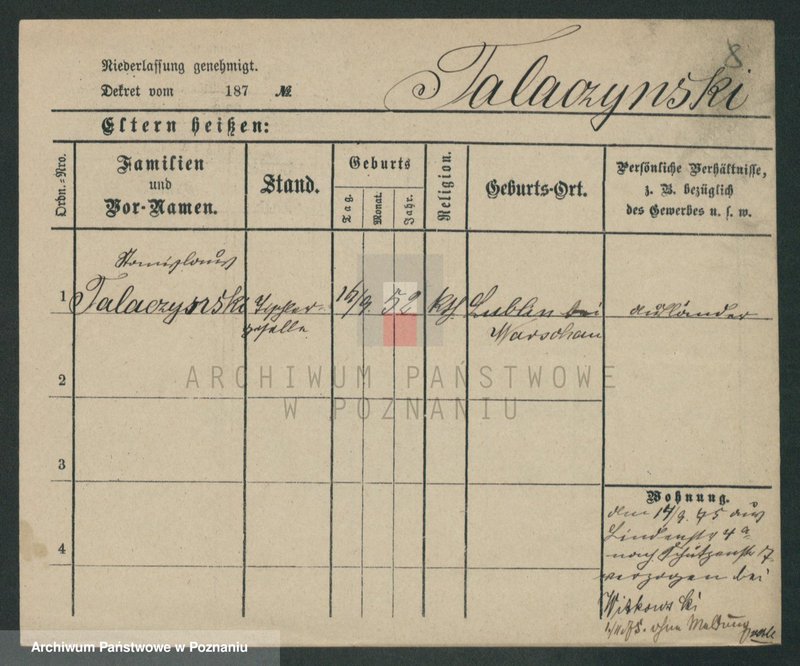 8
Niederlassung genehmigt.
Dekret vom 187 №
Talaczynski
Eltern heißen:
Ordn.-Nro.
Familien
und
Vor-Namen.
Stand.
Geburts
Tag.
Monat.
Jahr.
Religion.
Geburts-Ort.
Persönliche Verhältnisse,
z. B. bezüglich
des Gewerbes u. s. w.
Stanislaus
1 Talaczynski Tischler- 16/9. 52 kth Lublin bei Ausländer
geselle Warschau
2
3
4
ARCHIWUM PAŃSTWOWE
W POZNANIU
Wohnung.
den 14/9. 75 aus
Lindenstr 4a
nach Schützenstr 7
verzogen bei
Witkowski
ohne Meldung
Archiwum Państwowe w Poznaniu